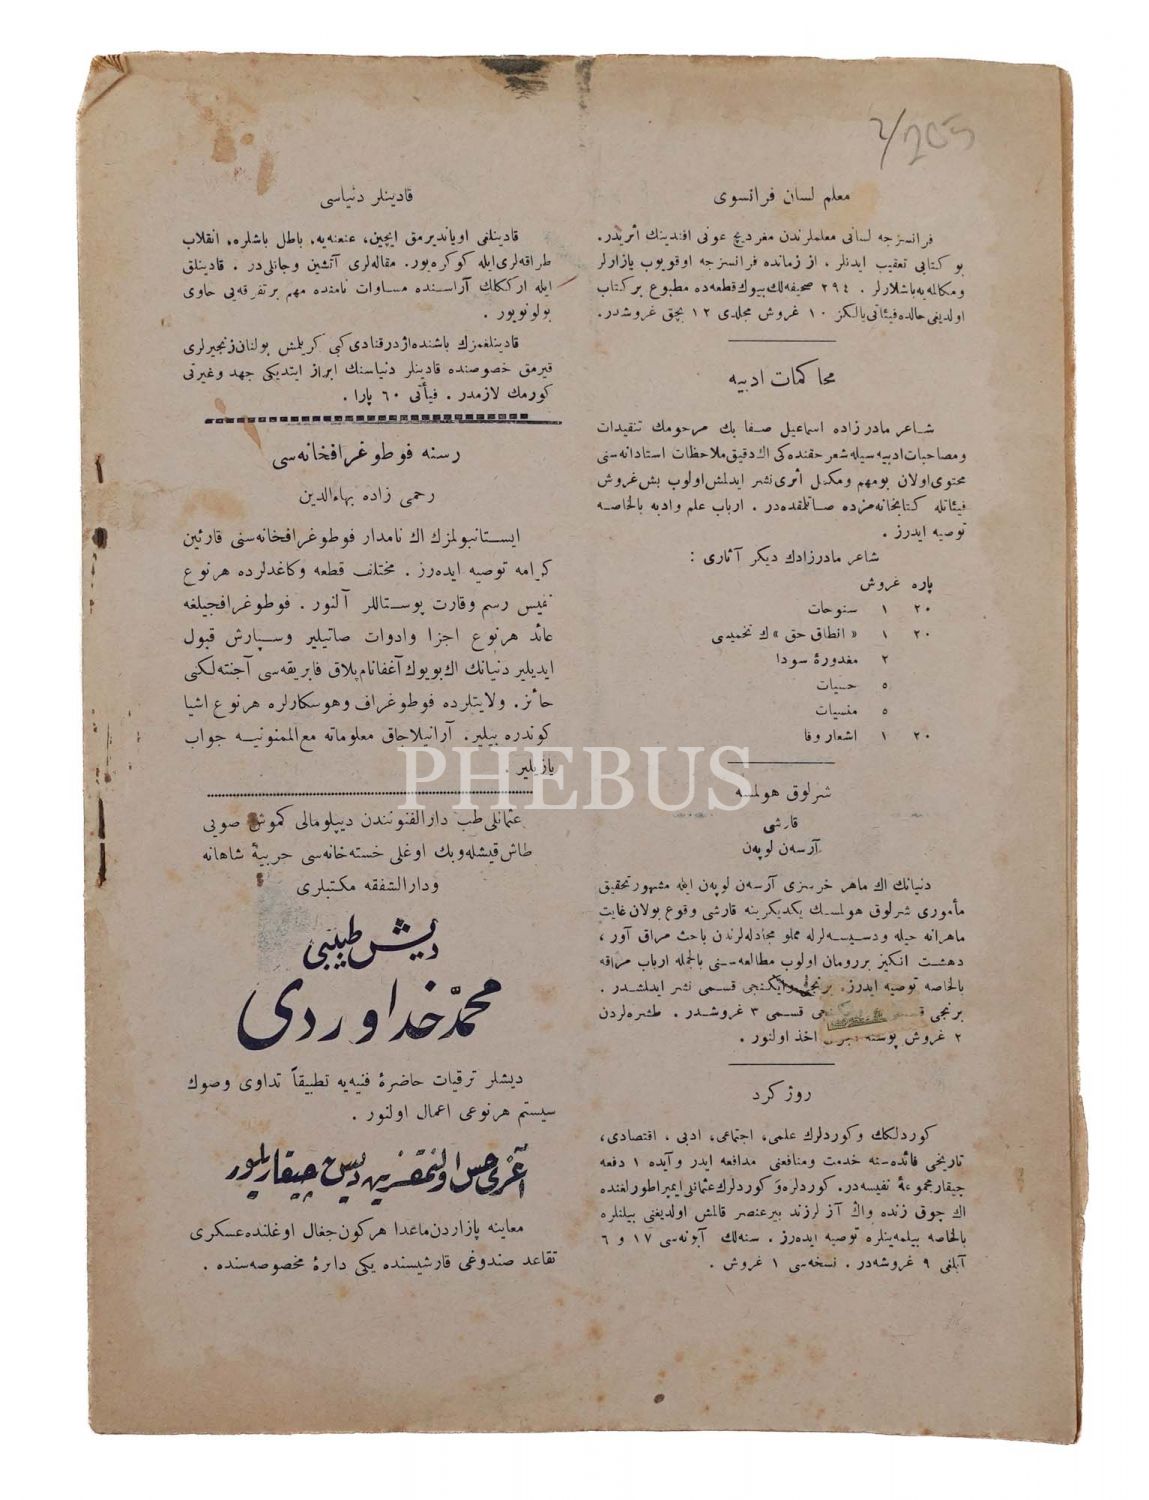 معلم لسان فرانسوی
فرانسزجه لسانی معلملرندن مغردیچ عونی افندینك اثریدر.
بو كتابی تعقیب ایدنلر ، از زمانده فرانسزجه اوقویوب یازارلر
ومكالمه‌یه باشلارلر . ٢٩٤ صحیفه‌لك بیوك قطعه‌ده مطبوع بر كتاب
اولدیغی حالده فیئاتی یالكز ١٠ غروش مجلدی ١٢ بچق غروشدر.
محاكمات ادبیه
شاعر مادرزاده اسماعیل صفا بك مرحومك تنقیدات
ومصاحبات ادبیه سیله شعر حقنده كی اك دقیق ملاحظات استادانه سنی
محتوی اولان بو مهم ومكمل اثری نشر ایدلمش اولوب بش غروش
فیئاتله كتابخانه مزده صاتلمقده در . ارباب علم وادبه بالخاصه
توصیه ایدرز .
شاعر مادرزادك دیكر آثاری :
پاره غروش
٢٠ ١ سنوحات
٢٠ ١ « انطاق حق » ك تخمیسی
٢ مغدورۀ سودا
٥ حسیات
٥ منسیات
٢٠ ١ اشعار وفا
شرلوق هولمسه
قارشی
آرسه‌ن لوپه‌ن
دنیانك اك ماهر خرسزی آرسه‌ن لوپه‌ن ایله مشهور تحقیق
مأموری شرلوق هولمسك یكدیكرینه قارشی وقوع بولان غایت
ماهرانه حیله ودسیسه لرله مملو مجادله لرندن باحث مراق آور ،
دهشت انكیز بر رومان اولوب مطالعه سنی بالجمله ارباب مراقه
بالخاصه توصیه ایدرز. برنجی وایكنجی قسمی نشر ایدلشدر .
برنجی قسمی ٣ غروشدر . طشره لردن
٢ غروش پوسته اخذ اولنور .
روژ كرد
كوردلكك وكوردلرك علمی، اجتماعی، ادبی ، اقتصادی،
تاریخی فائده سنه خدمت ومنافعنی مدافعه ایدر وآیده ١ دفعه
چیقار مجموعۀ نفیسه در. كوردلره و كوردلرك عثمانلی ایمپراطورلغنده
اك چوق زنده واك آز لرزند بر عنصر قالمش اولدیغنی بیلنلره
بالخاصه بیلمه‌ینلره توصیه ایده رز . سنه لك آبونه سی ١٧ و ٦
آیلغی ٩ غروشه در . نسخه سی ١ غروش .
قادینلر دنیاسی
قادینلغی اویاندیرمق ایچین، عنعنه‌یه، باطل باشلره، انقلاب
طراقه لری ایله كوكره یور. مقاله لری آتشین وجانلی در . قادینلق
ایله ارككلك آراسنده مساوات نامنده مهم بر تفرقه‌یی حاوی
بولونویور .
قادینلغمزك باشنده اژدر قنادی كبی كریلمش بولنان زنجیرلری
قیرمق خصوصنده قادینلر دنیاسنك ابراز ایتدیكی جهد وغیرتی
كورمك لازمدر . فیأتی ٦٠ پارا .
رسنه فوطوغرافخانه سی
رحمی زاده بهاءالدین
ایستانبولمزك اك نامدار فوطوغرافخانه سنی قارئین
كرامه توصیه ایده رز . مختلف قطعه وكاغدلرده هر نوع
نفیس رسم وقارت پوستاللر آلنور . فوطوغرافجیلغه
عائد هر نوع اجزا وادوات صاتیلیر وسپارش قبول
ایدیلیر دنیانك اك بویوك آغفا نام پلاق فابریقه سی آجنته لكنی
حائز. ولایتلرده فوطوغراف وهوسكارلره هر نوع اشیا
كوندره بیلیر. آرانیلاجاق معلوماته مع الممنونیه جواب
یازیلیر .
PHEBUS
عثمانلی طب دار الفنوننذن دیپلومالی كموش صویی
طاش قیشله وبك اوغلی خسته خانه سی حربیۀ شاهانه
ودار الشفقه مكتبلری
دیش طبیبی
محمد خداوردی
دیشلر ترقیات حاضرۀ فنیه‌یه تطبیقاً تداوی وصوك
سیستم هر نوعی اعمال اولنور .
آغری حس اولنمقسزین دیش چیقاریلیور
معاینه پازاردن ماعدا هر كون جغال اوغلنده عسكری
تقاعد صندوغی قارشیسنده یكی دائرۀ مخصوصه سنده .